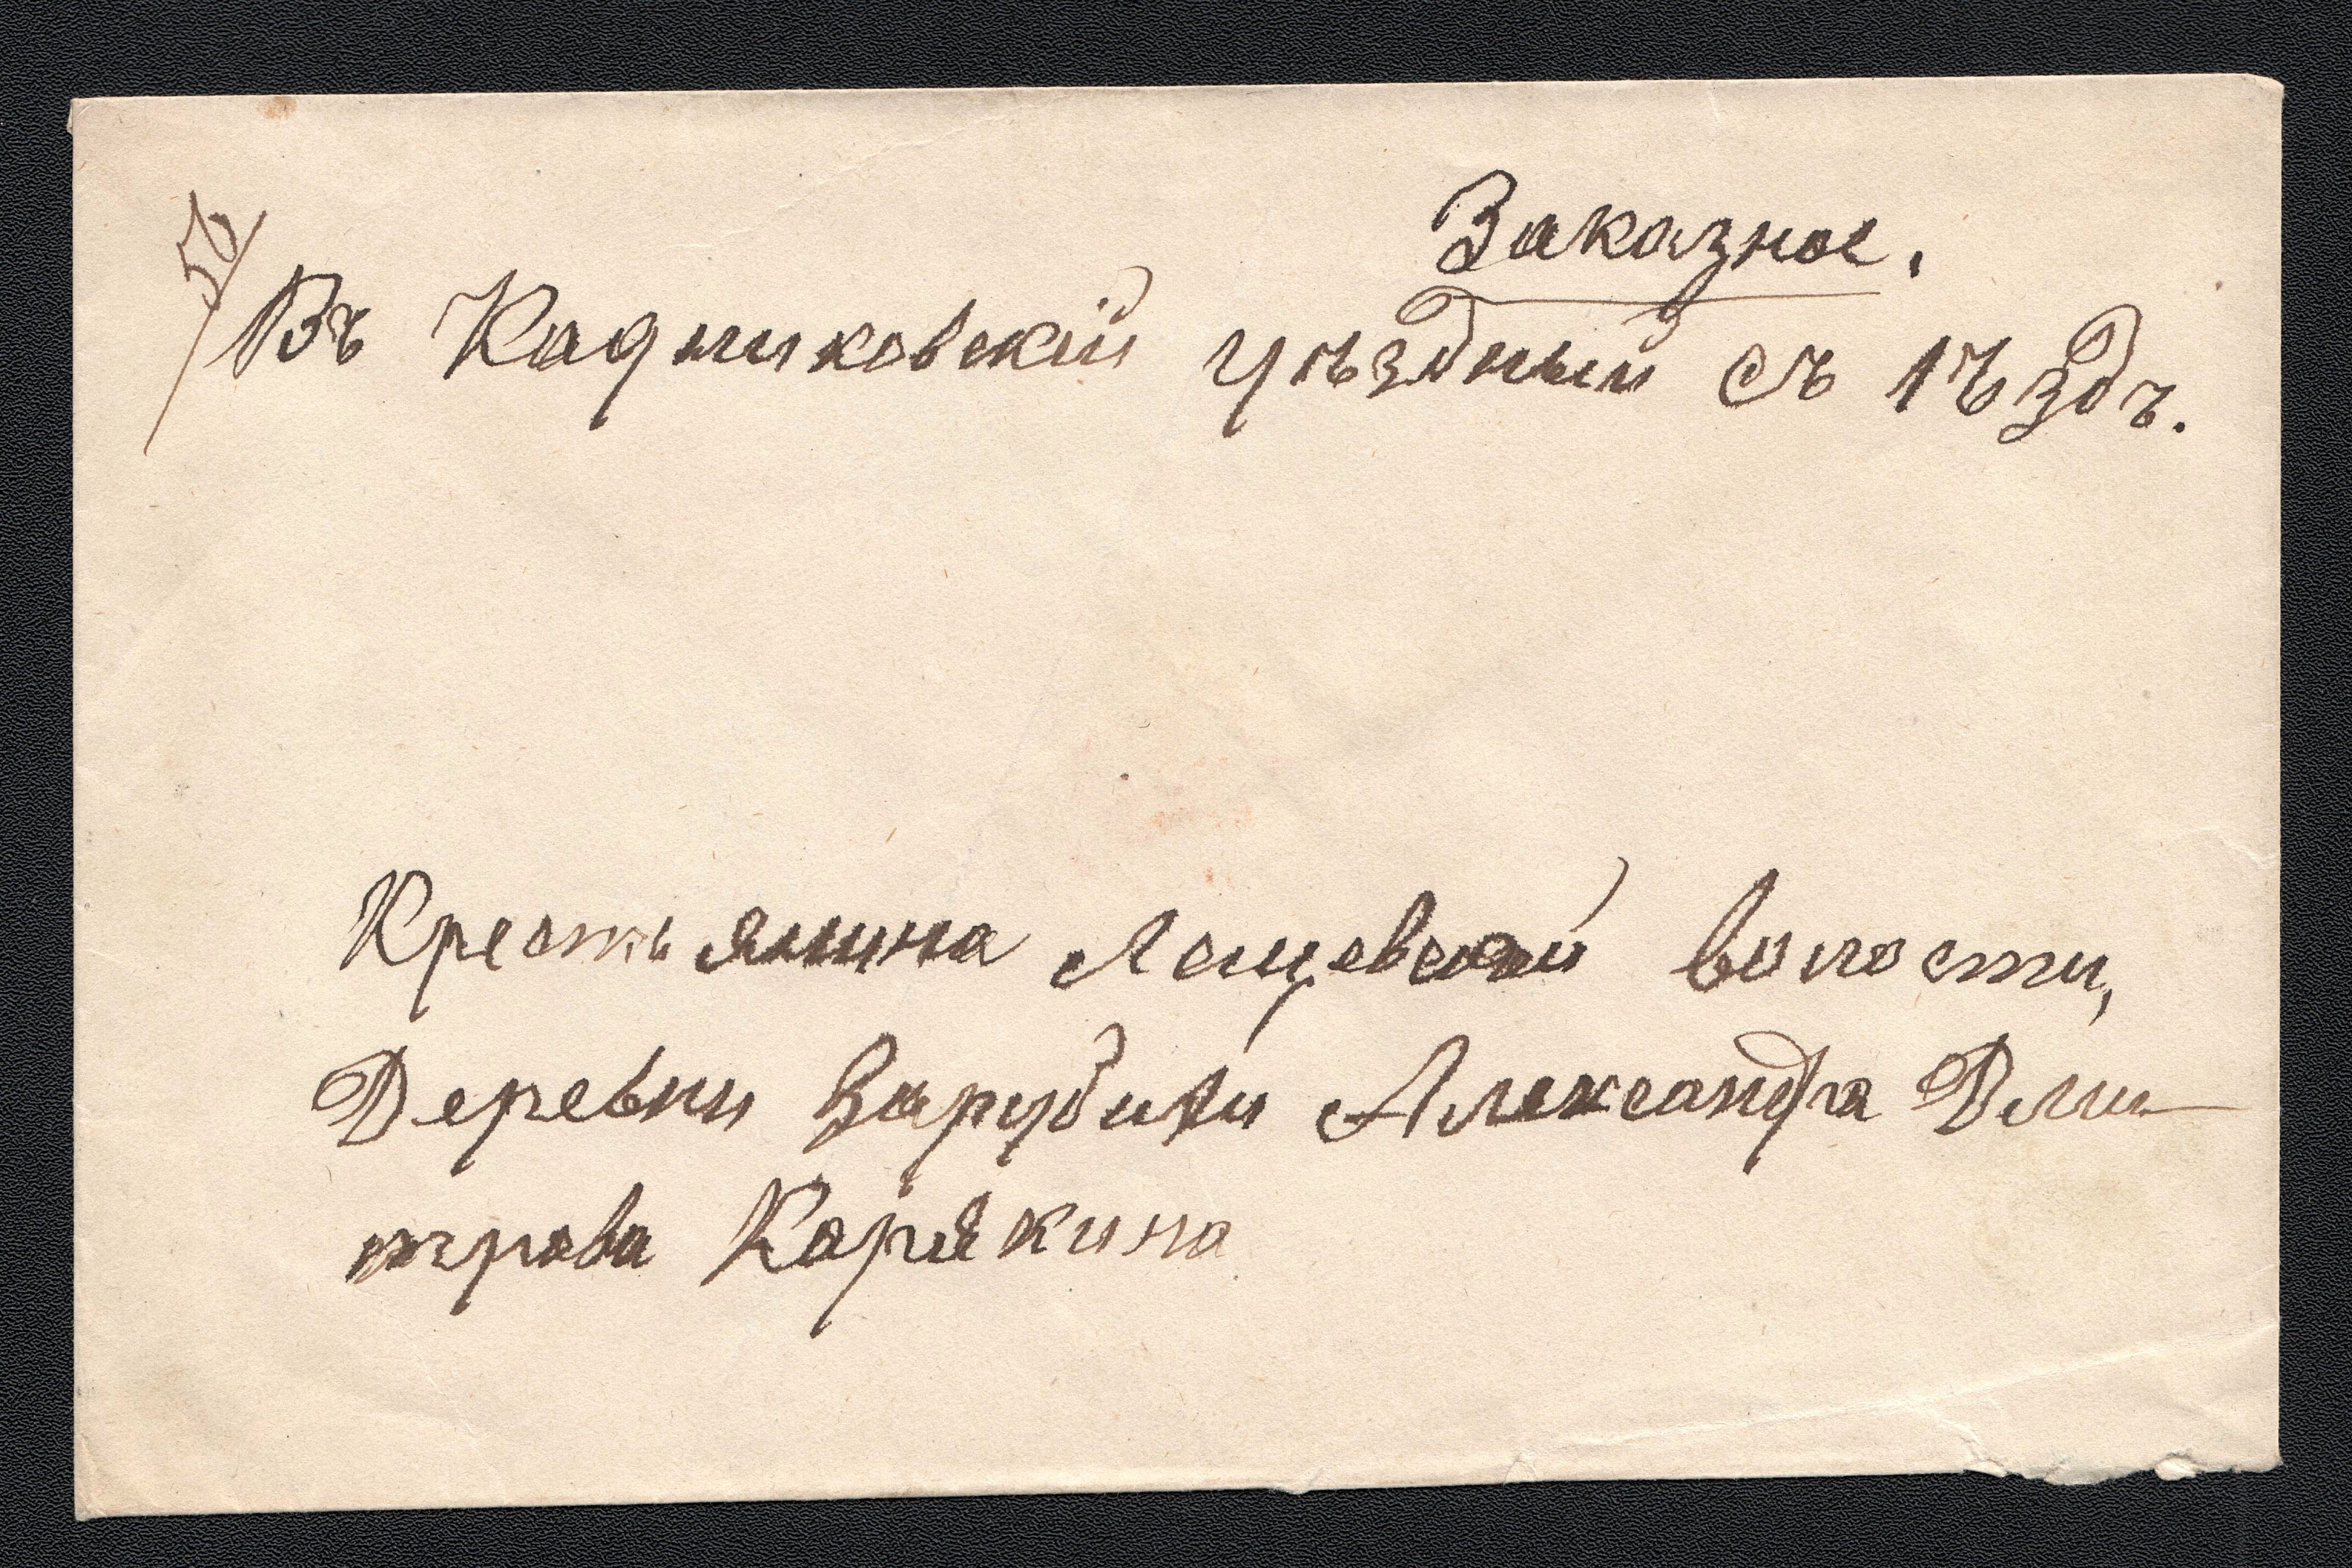 Заказное.
56
Въ Кадниковскій Уѣздный съѣздъ.
Крестьянина Лещевской волости,
Деревни Зарубихи Александра Дми-
трова Карякина